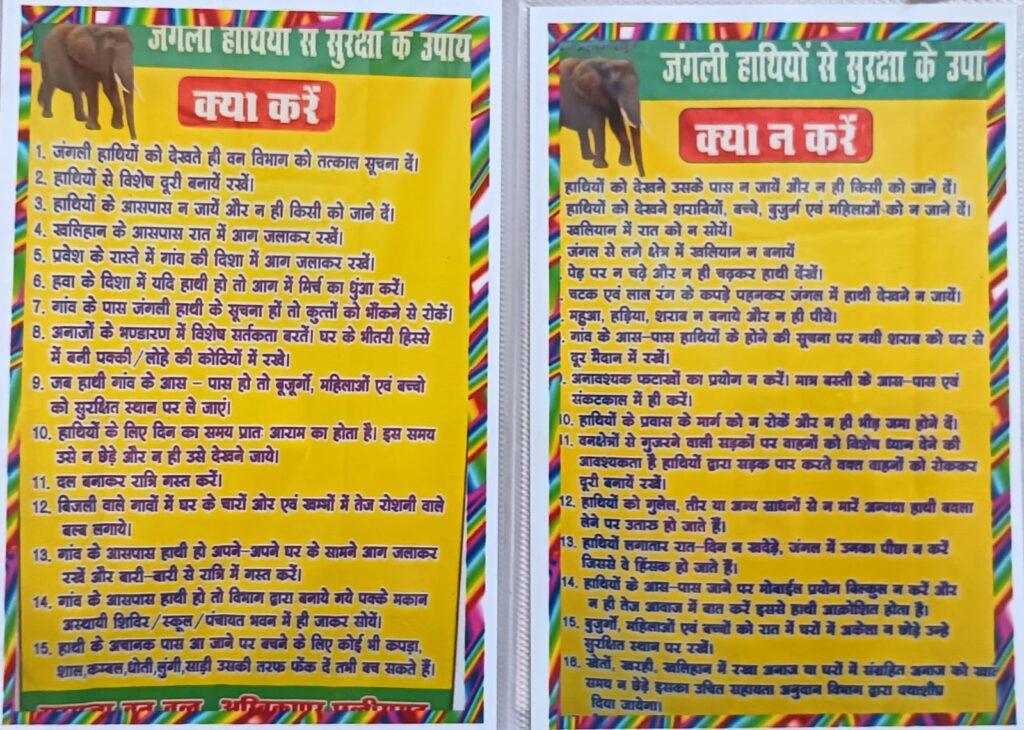 जंगली हाथियों से सुरक्षा के उपाय
क्या करें
1. जंगली हाथियों को देखते ही वन विभाग को तत्काल सूचना दें।
2. हाथियों से विशेष दूरी बनायें रखें।
3. हाथियों के आसपास न जायें और न ही किसी को जाने दें।
4. खलिहान के आसपास रात में आग जलाकर रखें।
5. प्रवेश के रास्ते में गांव की दिशा में आग जलाकर रखें।
6. हवा के दिशा में यदि हाथी हो तो आग में मिर्च का धुंआ करें।
7. गांव के पास जंगली हाथी के सूचना हों तो कुत्तों को भौंकने से रोकें।
8. अनाजों के भण्डारण में विशेष सर्तकता बरतें। घर के भीतरी हिस्से
में बनी पक्की/लोहे की कोठियों में रखे।
9. जब हाथी गांव के आस – पास हो तो बूजूर्गो, महिलाओं एवं बच्चो
को सुरक्षित स्थान पर ले जाएं।
10. हाथियों के लिए दिन का समय प्रातः आराम का होता है। इस समय
उसे न छेड़े और न ही उसे देखने जाये।
11. दल बनाकर रात्रि गस्त करें।
12. बिजली वाले गावों में घर के चारों ओर एवं खम्भों में तेज रोशनी वाले
बल्ब लगाये।
13. गांव के आसपास हाथी हो अपने-अपने घर के सामने आग जलाकर
रखें और बारी-बारी से रात्रि में गस्त करें।
14. गांव के आसपास हाथी हो तो विभाग द्वारा बनाये गये पक्के मकान
अस्थायी शिविर/स्कूल/पंचायत भवन में ही जाकर सोयें।
15. हाथी के अचानक पास आ जाने पर बचने के लिए कोई भी कपड़ा,
शाल,कम्बल,धोती,लुंगी,साड़ी उसकी तरफ फेंक दें तभी बच सकते हैं।
जंगली हाथियों से सुरक्षा के उपा
क्या न करें
हाथियों को देखने उसके पास न जायें और न ही किसी को जाने दें।
हाथियों को देखने शराबियों, बच्चे, बुजुर्ग एवं महिलाओं को न जाने दें।
खलियान में रात को न सोयें।
जंगल से लगे क्षेत्र में खलियान न बनायें
पेड़ पर न चढ़े और न ही चढ़कर हाथी देंखें।
चटक एवं लाल रंग के कपड़े पहनकर जंगल में हाथी देखने न जायें।
महुआ, हड़िया, शराब न बनाये और न ही पीये।
गांव के आस-पास हाथियों के होने की सूचना पर नयी शराब को घर से
दूर मैदान में रखें।
अनावश्यक फटाखों का प्रयोग न करें। मात्र बस्ती के आस-पास एवं
संकटकाल में ही करें।
10. हाथियों के प्रवास के मार्ग को न रोकें और न ही भीड़ जमा होने दें।
11. वनक्षेत्रों से गुजरने वाली सड़कों पर वाहनों को विशेष ध्यान देने की
आवश्यकता है हाथियों द्वारा सड़क पार करते वक्त वाहनों को रोककर
दूरी बनायें रखें।
12. हाथियों को गुलेल, तीर या अन्य साधनों से न मारें अन्यथा हाथी बदला
लेने पर उतारू हो जाते हैं।
13. हाथियों लगातार रात-दिन न खदेड़े, जंगल में उनका पीछा न करें
जिससे वे हिंसक हो जाते हैं।
14. हाथियों के आस-पास जाने पर मोबाईल प्रयोग बिल्कुल न करें और
न ही तेज आवाज में बात करें इससे हाथी आक्रोशित होता है।
15. बुजुर्गों, महिलाओं एवं बच्चों को रात में घरों में अकेला न छोड़े उन्हे
सुरक्षित स्थान पर रखें।
16. खेतों, खरही, खलिहान में रखा अनाज या घरों में संग्रहित अनाज को खाते
समय न छेड़े इसका उचित सहायता अनुदान विभाग द्वारा यथाशीघ्र
दिया जायेगा।